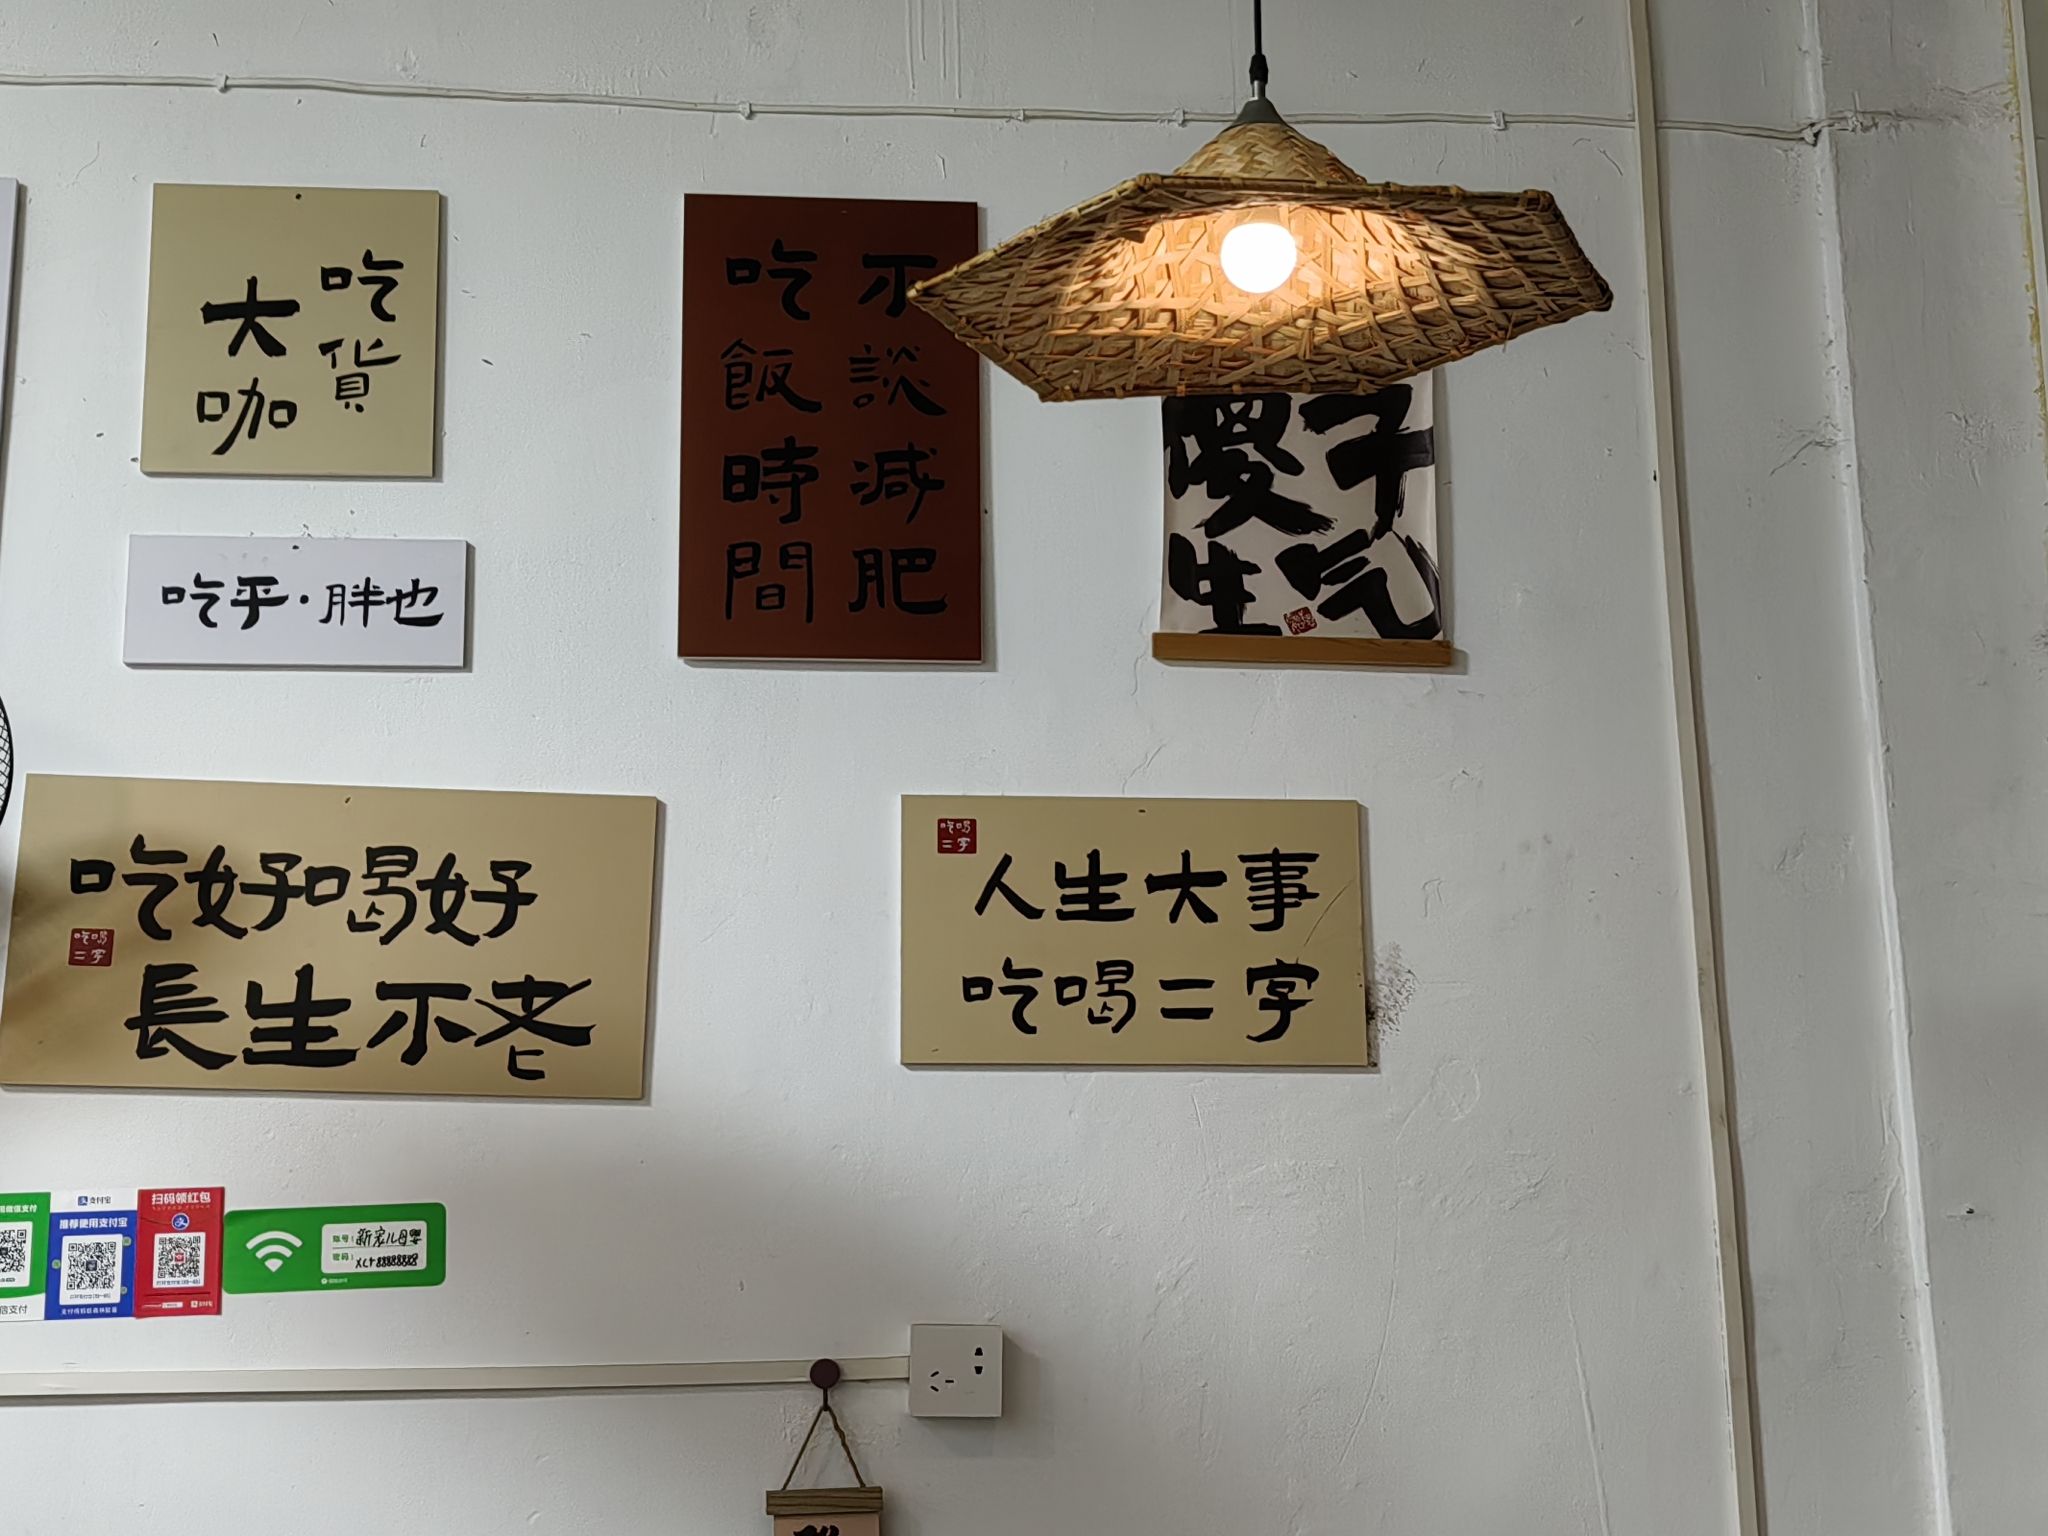 吃货
大咖
吃乎·胖也
吃飯時間
不談減肥
子
傻
气
生
吃好喝好
長生不老
吃喝
二字
人生大事
吃喝二字
吃喝
二字
信支付
支付宝
推荐使用支付宝
扫码领红包
账号:新宠儿母婴
密码:xcr88888888